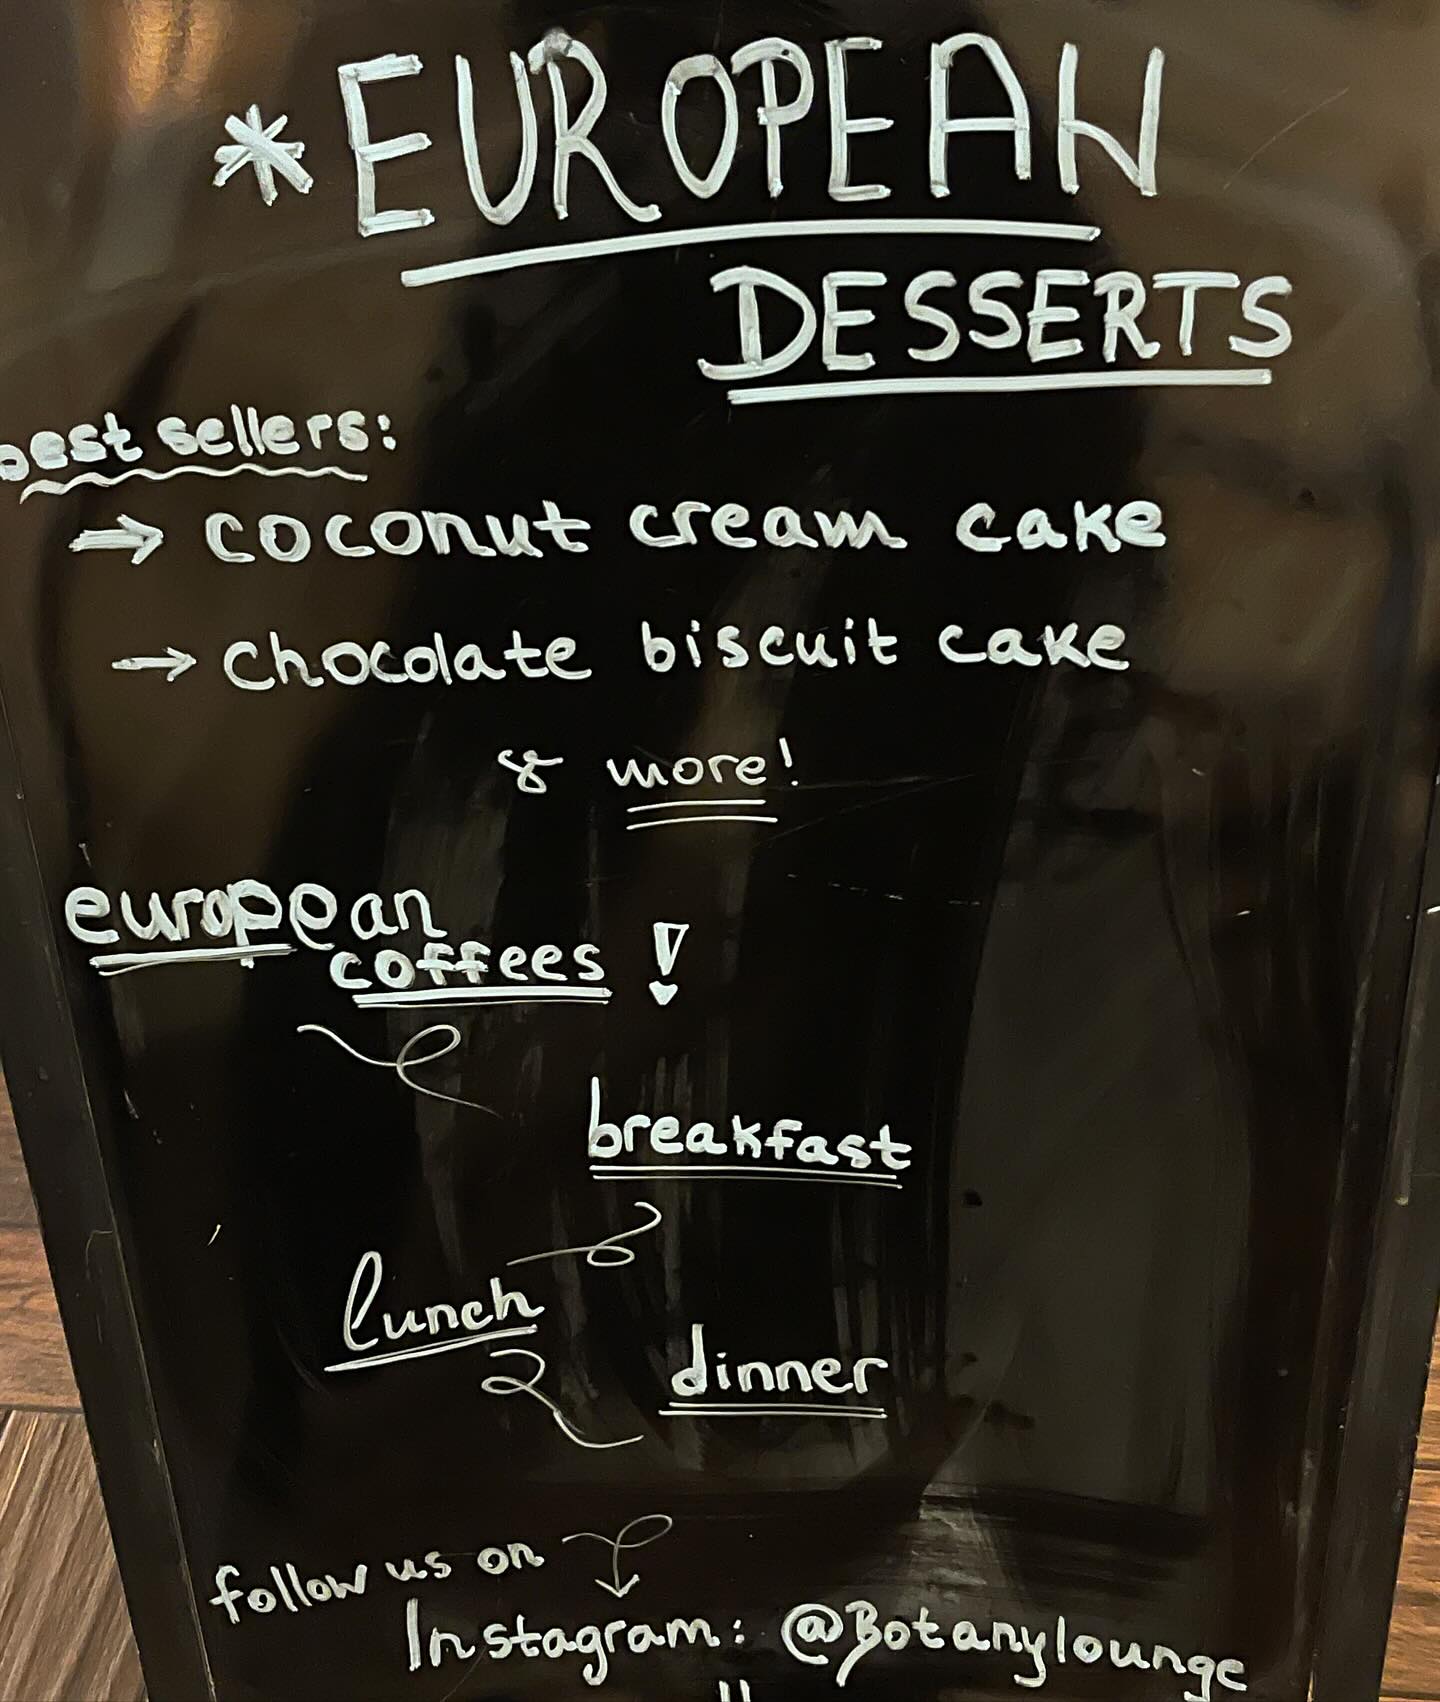 *EUROPEAN
DESSERTS
best sellers:
→ coconut cream cake
→ chocolate biscuit cake
& more!
european
coffees!
breakfast
lunch
dinner
follow us on
Instagram: @Botanylounge